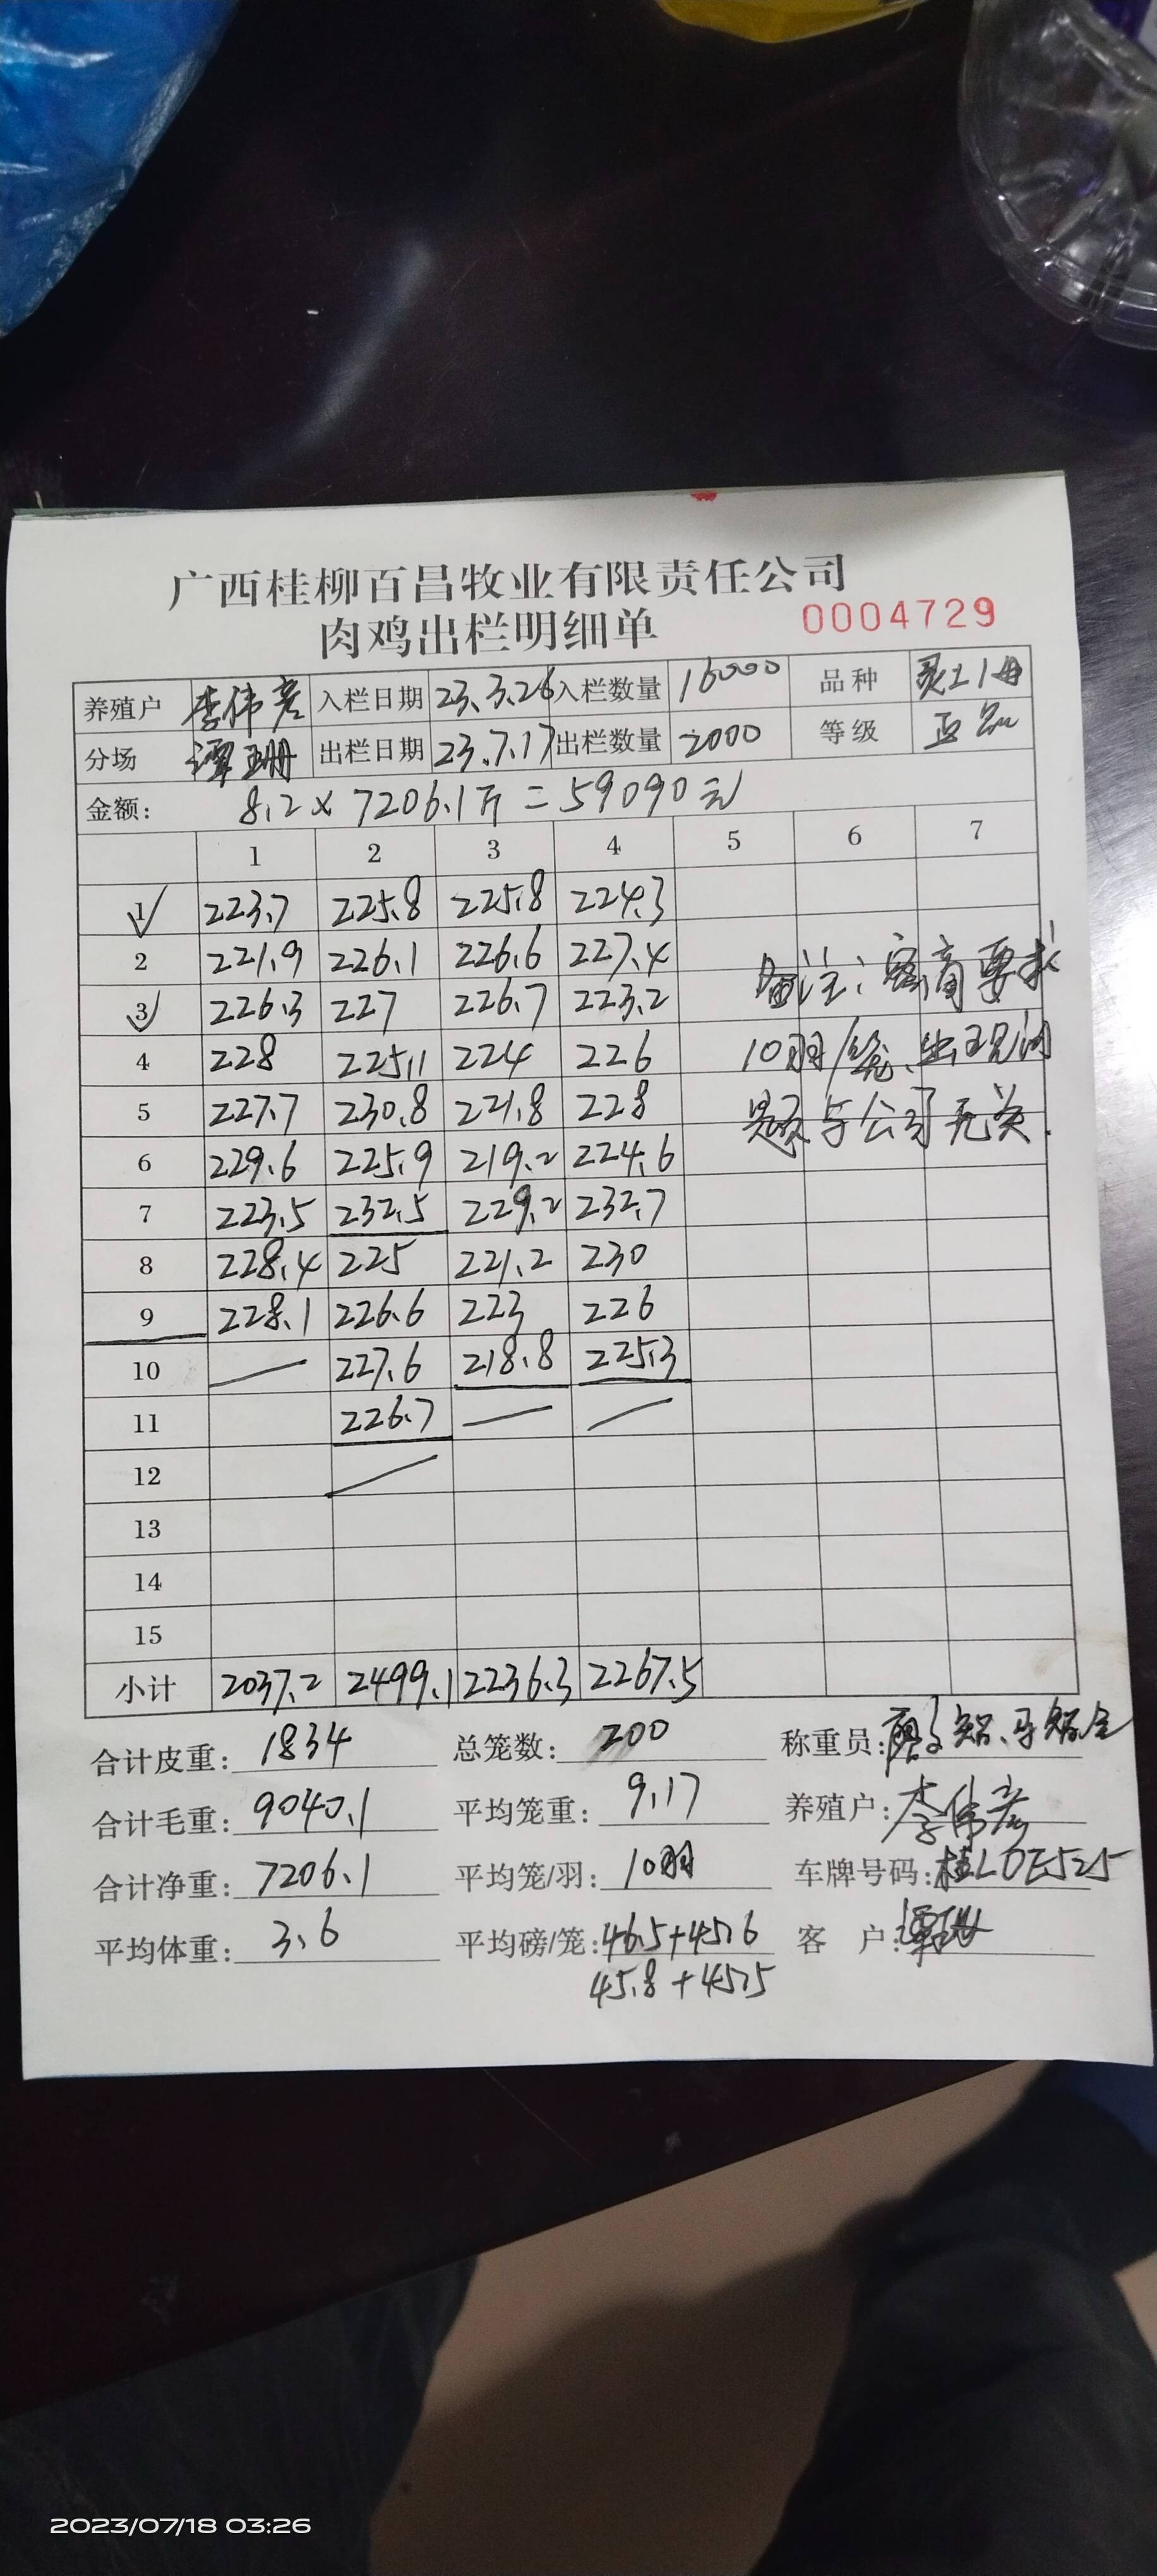 广西桂柳百昌牧业有限责任公司
肉鸡出栏明细单 0004729
养殖户 李伟彦 入栏日期 23.3.26 入栏数量 16000 品种 灵土1母
分场 谭珊 出栏日期 23.7.17 出栏数量 2000 等级
金额: 8.2 x 7206.1斤 = 59090元
1 2 3 4 5 6 7
1 223.7 225.8 225.8 224.3
2 221.9 226.1 226.6 227.4
3 226.3 227 226.7 223.2
备注: 客商要求
4 228 225.1 224 226
10羽/笼、出现问
5 227.7 230.8 221.8 228
题与公司无关.
6 229.6 225.9 219.2 224.6
7 223.5 232.5 229.2 232.7
8 228.4 225 221.2 230
9 228.1 226.6 223 226
10 — 227.6 218.8 225.3
11 226.7 — —
12 —
13
14
15
小计 2037.2 2499.1 2236.3 2267.5
合计皮重: 1834 总笼数: 200 称重员:
合计毛重: 9040.1 平均笼重: 9.17 养殖户: 李伟彦
合计净重: 7206.1 平均笼/羽: 10羽 车牌号码: 桂L0E525
平均体重: 3.6 平均磅/笼: 46.5+45.6 客 户: 谭珊
45.8+45.5
2023/07/18 03:26